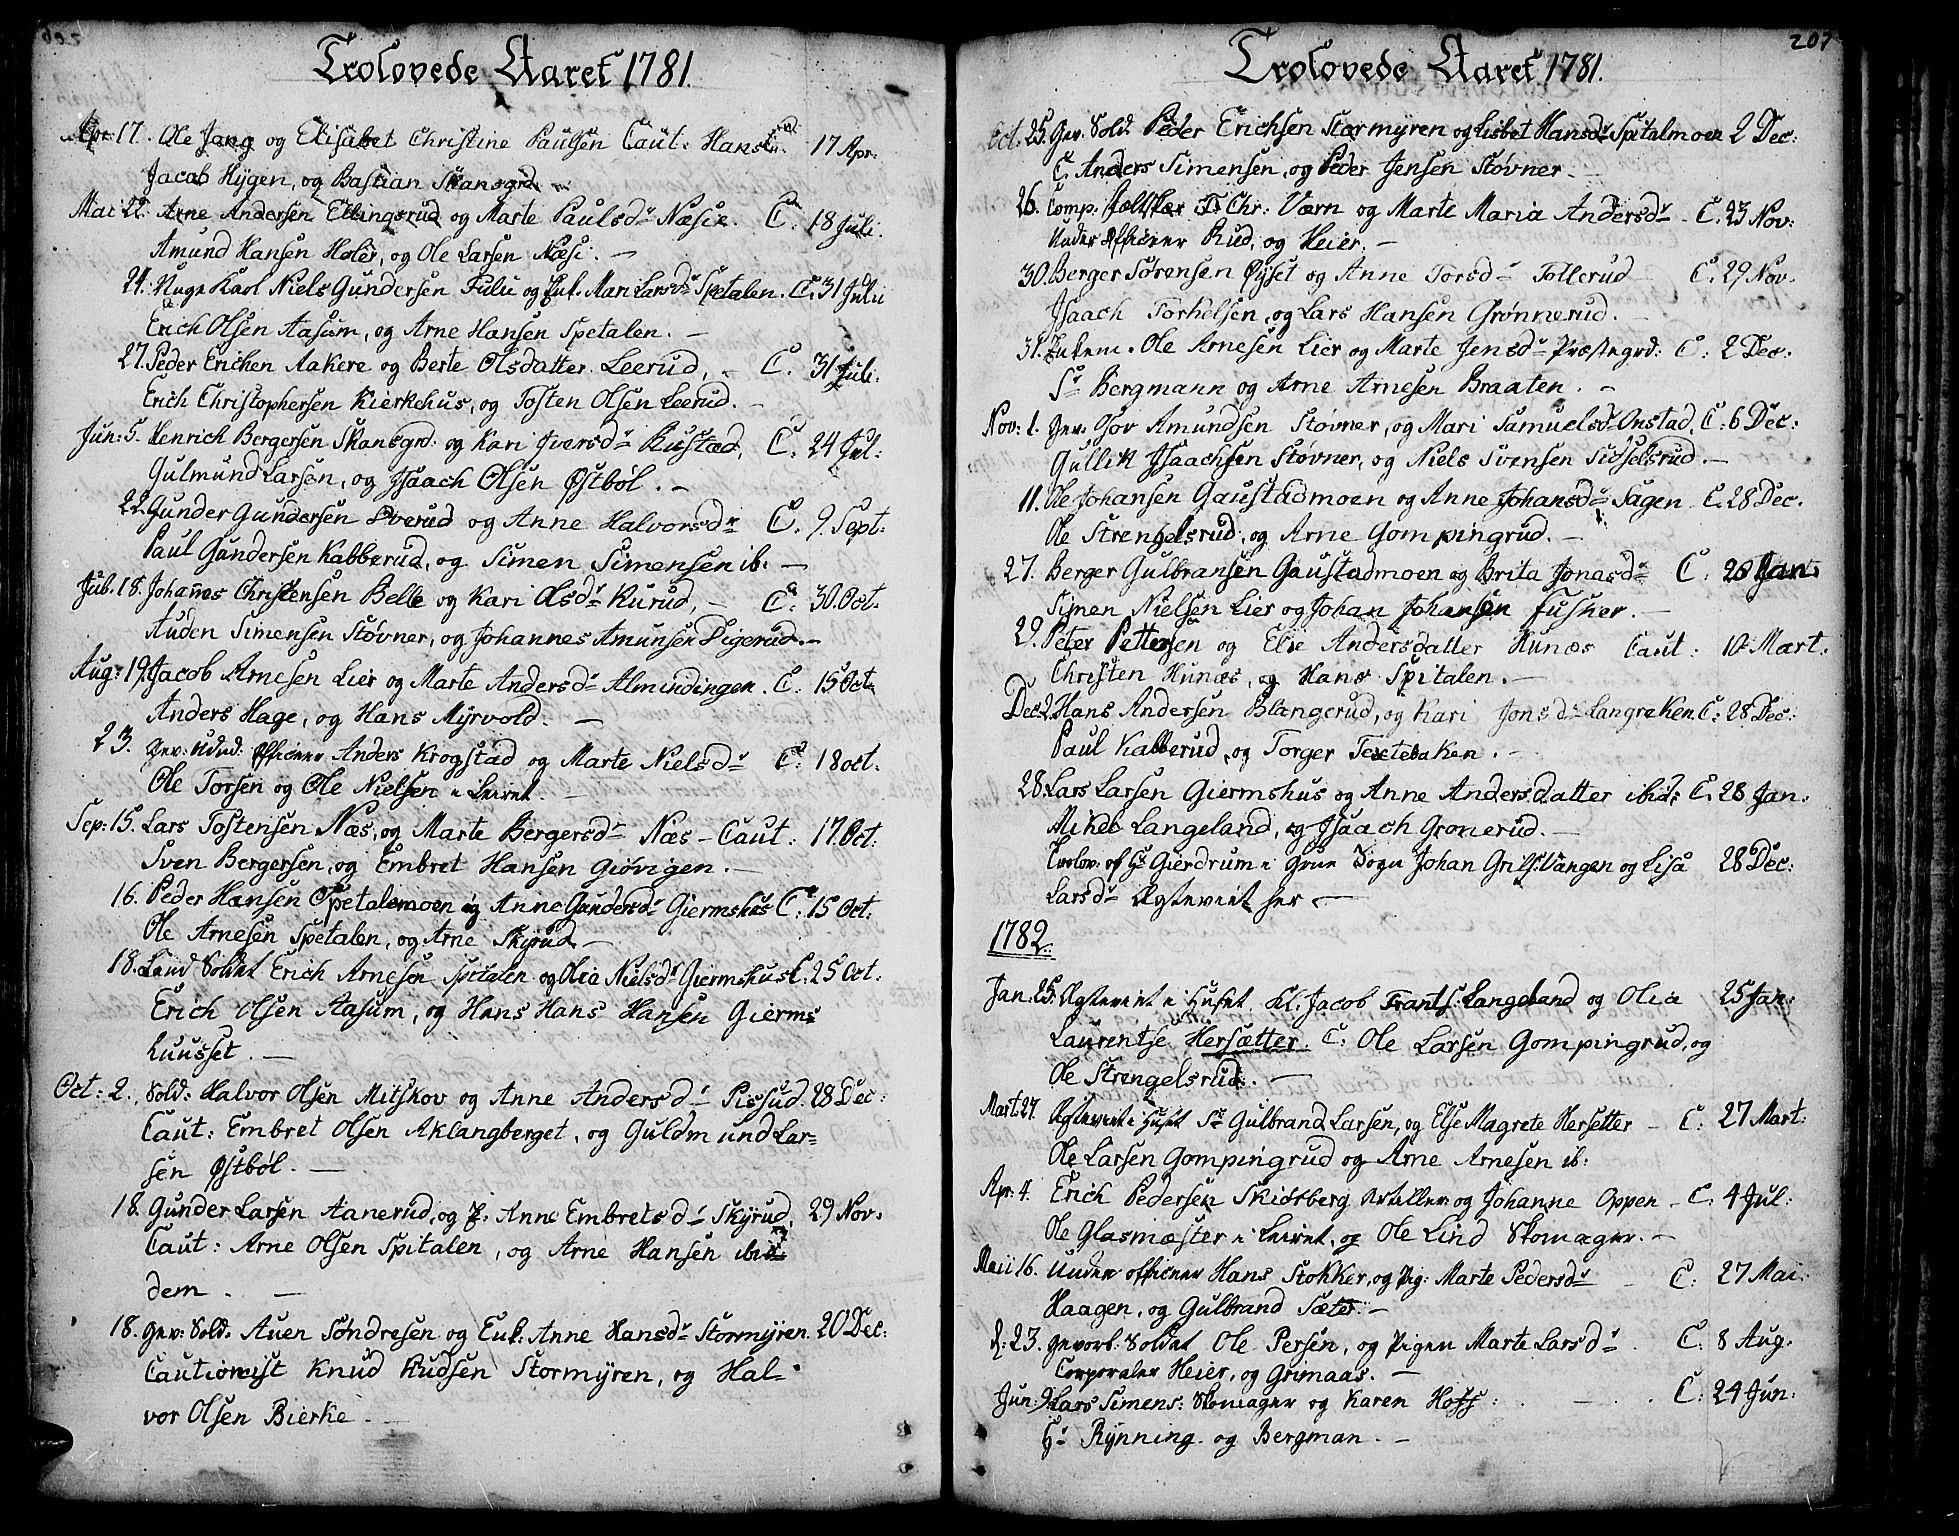 Trolovede Aaret 1781.
Apr: 17. Ole Jang og Elisabet Christine Paulsen Caut: Hans 17 Apr:
Jacob Hygen, og Bastian Skansgrd.
Mai 22. Arne Andersen Ellingsrud og Marte Paulsdr Næsie. C. 18 Juli.
Amund Hansen Holer, og Ole Larsen Næsi. —
24. Unge Karl Niels Gundersen Fulu og Enk. Mari Larsdr Spetalen. C. 31 Julii
Erich Olsen Aasum, og Arne Hansen Spetalen. —
27. Peder Erichen Aakere og Berte Olsdatter Leerud, - C. 31 Juli:
Erich Christophersen Kierkehus, og Tosten Olsen Leerud. -
Jun: 5. Henrich Bergersen Skansgrd. og Kari Iversdr Bustad, C. 24 Jul:
Gulmund Larsen, og Isaach Olsen Østbøl. -
22. Gunder Gundersen Sverud og Anne Halvorsdr C. 9. Sept:
Paul Gundersen Kabberud, og Simen Simensen ib. —
Jul. 18. Johannes Christensen Belle og Kari Olsdr Kurud, - C. 30. Oct.
Auden Simensen Støvner, og Johannes Amunsen Digerud. -
Aug: 19. Jacob Arnesen Lier og Marte Andersdr Almindingen. C. 15 Oct.
Anders Hage, og Hans Myrvold. —
23. Gev: Und: Officeer Anders Krogstad og Marte Nielsdr C. 18 oct.
Ole Torsen og Ole Nielsen i Leiret. -
Sep: 15. Lars Tostensen Næs, og Marte Bergersdr Næs - Caut: 17. Oct:
Sven Bergersen, og Embret Hansen Giøvigen. —
16. Peder Hansen Spetalemoen og Anne Gundersdr Giermshus C: 15 Oct:
Ole Arnesen Spetalen, og Arne Skyrud -
18. Land Soldat Erich Arnesen Spitalen og Olia Nielsdr Giermshus C. 25 Oct:
Erich Olsen Aasum, og Hans Hans Hansen Gierms=
huusset. —
Oct: 2. Sold: Halvor Olsen Mitskov og Anne Andersdr Pissud. 28 Dec:
Caut: Embret Olsen Aklangberget, og Guldmund Lar=
sen Østbøl. —
18. Gunder Larsen Aanerud, og P: Anne Embretsdr Skyrud, 29 Nov.
Caut: Arne Olsen Spitalen, og Arne Hansen ibi=
dem. —
18. Gev: Sold. Auen Søndresen og Enk: Anne Hansdr Stormyren. 20 Dec:
Cautionist Knud Kudsen Stormyren, og Hal=
vor Olsen Bierke. -
207
Trolovede Aaret 1781.
Oct: 25. Gev. Sold. Peder Erichsen Stormyren og Lisbet Hansdr Spitalmoen 2 Dec:
C. Anders Simensen, og Peder Jensen Støvner. -
26. Comp: Chr: Værn og Marte Maria Andersdr - C. 23 Nov:
Under Officeer Rud, og Heier. —
30. Berger Sørensen Øyset og Anne Torsdr Tollerud C. 29 Nov.
Isaach Torkelsen, og Lars Hansen Grønnerud. -
31. Enkem. Ole Arnesen Lier og Marte Jensdr Præstegrd: C: 2 Dec.
Sr Bergmann og Arne Arnesen Braaten. -
Nov: 1. Gev: Gov Amundsen Støvner, og Mari Samuelsd. Onstad. C: 6 Dec:
Gullik Isaachsen Støvner, og Niels Svensen Sidselsrud. -
11. Ole Johansen Gaustadmoen og Anne Johansdr Sagen C. 28 Dec.
Ole Strengelsrud, og Arne Gompingrud. -
27. Berger Gulbransen Gaustadmoen og Brita Jonasdr C: 20 Jan:
Simen Nielsen Lier og Johan Johansen Fusker. -
29. Peter Pettersen og Elie Andersdatter Hunæs Caut: 10 Mart:
Christen Hunæs, og Hans Spitalen. -
Dec. 2. Hans Andersen Blangerud, og Kari Jonsdr Langreken. C: 28 Dec:
Paul Kabberud, og Torger Teetebaken. -
28. Lars Larsen Giermshus og Anne Andersdatter ibid: C. 28 Jan.
Mikel Langeland, og Isaach Gronerud. -
Trolov: af Hr Gierdrum i Grue Sogn Johan Grils: Vangen og Lisa 28 Dec:
Larsdr Ægteviet her —
1782.
Jan: 25. Ægteviet i Huset. Kl. Jacob Frants: Langeland og Olia 25 Jan:
Laurentse Hersætter. C: Ole Larsen Gompingrud, og
Ole Strengelsrud. -
Mart. 27. Ægteviet i Huset Sr Gulbrand Larsen, og Else Magrete Hersetter - C: 27 Mart:
Ole Larsen Gompingrud og Arne Arnesen ib:
Apr: 4. Erich Pedersen Skiøtberg Artiller og Johanne Oppen - C. 4 Jul:
Ole Glasmæster i Leiret, og Ole Lind Skomager. -
Maii 16. Under officeer Hans Stokker, og Pig: Marte Pedersdr - C: 27 Mai:
Haagen, og Gulbrand Sæter. -
d: 23. Gevorb. Soldat Ole Persen, og Pigen Marte Larsdr - C: 8 Aug.
Corporaler Heier, og Grimaas. -
Jun: 9. Lars Simens: Skomager og Karen Hoff: C: 24 Jun:
Hr Rynning og Bergman. -